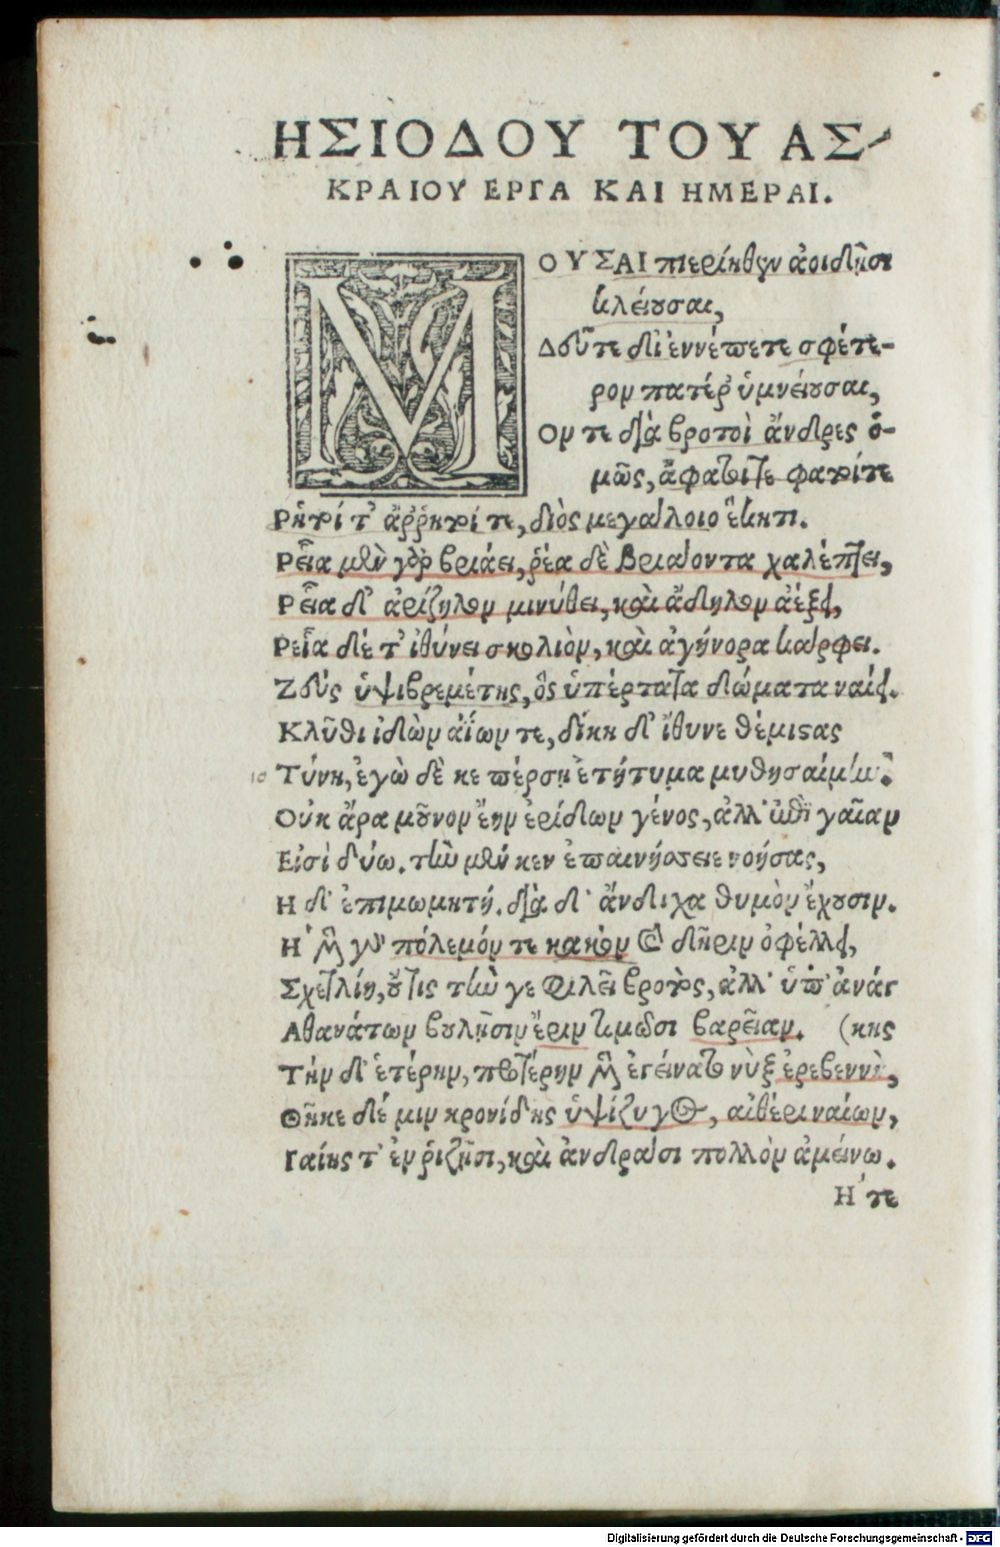 ΗΣΙΟΔΟΥ ΤΟΥ ΑΣ-
ΚΡΑΙΟΥ ΕΡΓΑ ΚΑΙ ΗΜΕΡΑΙ.
ΜΟΥΣΑΙ πιερίηθεν ἀοιδῇσι
κλείουσαι,
Δεῦτε δὴ ἐννέπετε σφέτε-
ρον πατέρ' ὑμνείουσαι,
Ον τε διὰ βροτοὶ ἄνδρες ὁ-
μῶς, ἄφατοί τε φατοί τε
Ρητοί τ' ἄρρητοί τε, διὸς μεγάλοιο ἕκητι.
Ρεῖα μὲν γὰρ βριάει, ῥέα δὲ βριάοντα χαλέπτει,
Ρεῖα δ' ἀρίζηλον μινύθει, καὶ ἄδηλον ἀέξει,
Ρεῖα δέ τ' ἰθύνει σκολιὸν, καὶ ἀγήνορα κάρφει.
Ζεύς ὑψιβρεμέτης, ὃς ὑπέρτατα δώματα ναίει.
Κλῦθι ἰδὼν ἀΐων τε, δίκη δ' ἴθυνε θέμιστας
10 Τύνη, ἐγὼ δέ κε πέρσῃ ἐτήτυμα μυθησαίμην.
Οὐκ ἄρα μοῦνον ἔην ἐρίδων γένος, ἀλλ' ἐπὶ γαῖαν
Εἰσὶ δύω. τὴν μέν κεν ἐπαινήσειε νοήσας,
Η δ' ἐπιμωμητή. διὰ δ' ἄνδιχα θυμὸν ἔχουσιν.
Η μὲν γὰρ πόλεμόν τε κακὸν καὶ δῆριν ὀφέλλει,
Σχετλίη, οὔτις τήν γε φιλεῖ βροτός, ἀλλ' ὑπ' ἀνάγ
Αθανάτων βουλῇσιν ἔριν τιμῶσι βαρεῖαν. (κης
Τὴν δ' ἑτέρην, προτέρην μὲν ἐγείνατο νὺξ ἐρεβεννὴ,
Θῆκε δέ μιν κρονίδης ὑψίζυγος, αἰθέρι ναίων,
Γαίης τ' ἐν ῥίζῃσι, καὶ ἀνδράσι πολλὸν ἀμείνω.
Η τε
Digitalisierung gefördert durch die Deutsche Forschungsgemeinschaft - DFG